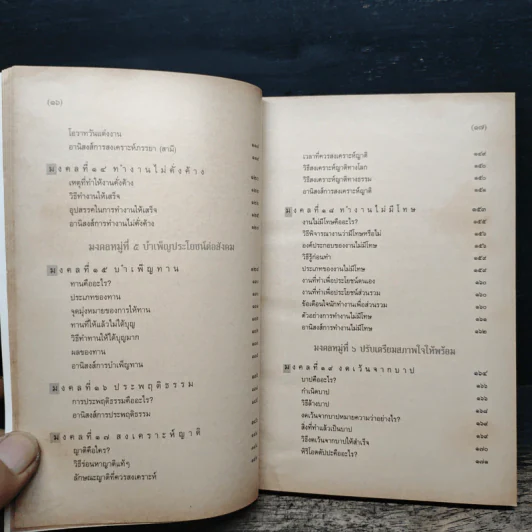 (๑๖)
โอวาทวันแต่งงาน
อานิสงส์การสงเคราะห์ภรรยา (สามี)
มงคลที่ ๑๔ ทำงานไม่คั่งค้าง
เหตุที่ทำให้งานคั่งค้าง
วิธีทำงานให้เสร็จ
อุปสรรคในการทำงานให้เสร็จ
อานิสงส์การทำงานไม่คั่งค้าง
มงคลหมู่ที่ ๕ บำเพ็ญประโยชน์ต่อสังคม
มงคลที่ ๑๕ บำเพ็ญทาน
ทานคืออะไร?
ประเภทของทาน
จุดมุ่งหมายของการให้ทาน
ทานที่ให้แล้วไม่ได้บุญ
วิธีทำทานให้ได้บุญมาก
ผลของทาน
อานิสงส์การบำเพ็ญทาน
มงคลที่ ๑๖ ประพฤติธรรม
การประพฤติธรรมคืออะไร?
อานิสงส์การประพฤติธรรม
มงคลที่ ๑๗ สงเคราะห์ญาติ
ญาติคือใคร?
วิธีร่อนหาญาติแท้ๆ
ลักษณะญาติที่ควรสงเคราะห์
(๑๗)
เวลาที่ควรสงเคราะห์ญาติ
วิธีสงเคราะห์ญาติทางโลก
วิธีสงเคราะห์ญาติทางธรรม
อานิสงส์การสงเคราะห์ญาติ
มงคลที่ ๑๘ ทำงานไม่มีโทษ ๑๕๓
งานไม่มีโทษคืออะไร? ๑๕๕
วิธีพิจารณางานว่ามีโทษหรือไม่ ๑๕๕
องค์ประกอบของงานไม่มีโทษ ๑๕๖
วิธีรู้ก่อนทำ
ประเภทของงานไม่มีโทษ
งานที่ทำเพื่อประโยชน์ตนเอง
งานที่ทำเพื่อประโยชน์ส่วนรวม ๑๖๐
ข้อเตือนใจนักทำงานเพื่อส่วนรวม ๑๖๐
ตัวอย่างการทำงานไม่มีโทษ ๑๖๑
อานิสงส์การทำงานไม่มีโทษ ๑๖๒
มงคลหมู่ที่ ๖ ปรับเตรียมสภาพใจให้พร้อม
มงคลที่ ๑๙ งดเว้นจากบาป
บาปคืออะไร? ๑๖๖
กำเนิดบาป ๑๖๖
วิธีล้างบาป
งดเว้นจากบาปหมายความว่าอย่างไร? ๑๖๘
สิ่งที่ทำแล้วเป็นบาป
วิธีงดเว้นจากบาปให้สำเร็จ ๑๗๐
หิริโอตตัปปะคืออะไร? ๑๗๑